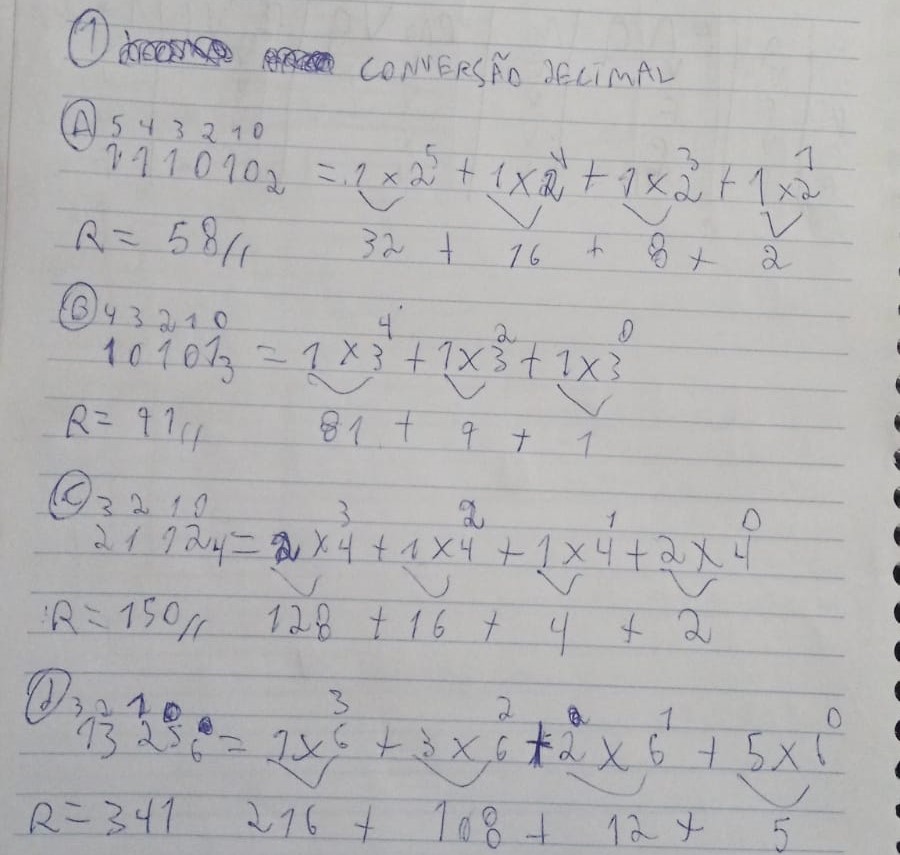 ① CONVERSÃO DECIMAL
Ⓐ 5 4 3 2 1 0
111010₂ = 1 x 2⁵ + 1 x 2⁴ + 1 x 2³ + 1 x 2¹
R = 58// 32 + 16 + 8 + 2
Ⓑ 4 3 2 1 0
10101₃ = 1 x 3⁴ + 1 x 3² + 1 x 3⁰
R = 91// 81 + 9 + 1
Ⓒ 3 2 1 0
2112₄ = 2 x 4³ + 1 x 4² + 1 x 4¹ + 2 x 4⁰
R = 150// 128 + 16 + 4 + 2
ⓓ 3 2 1 0
1325₆ = 1 x 6³ + 3 x 6² + 2 x 6¹ + 5 x 6⁰
R = 341 216 + 108 + 12 + 5